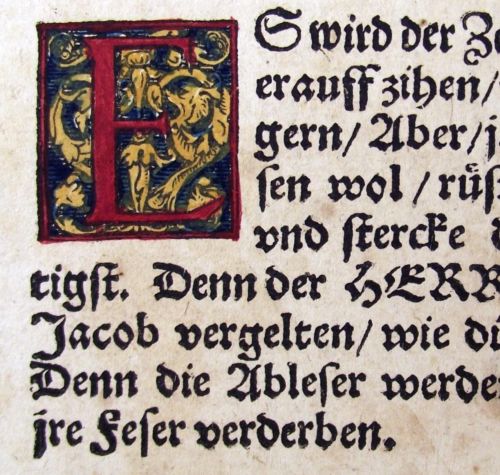 ES wird der Ze
erauff zihen/
gern/ Aber/ ja
sen wol / rüſ
vnd ſtercke d
tigſt. Denn der HERR
Jacob vergelten/ wie dü
Denn die Ableſer werde
jre Feſer verderben.